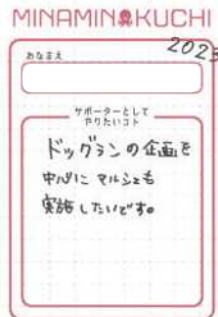 MINAMINKUCHI
2023
おなまえ
サポーターとして
やりたいコト
ドッグランの企画を
中心に マルシェも
実施したいです。